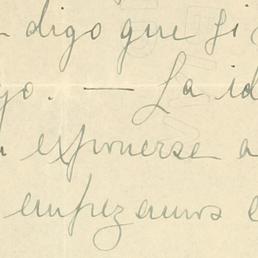 digo que si
yo. — La id
exponerse a
empezamos e